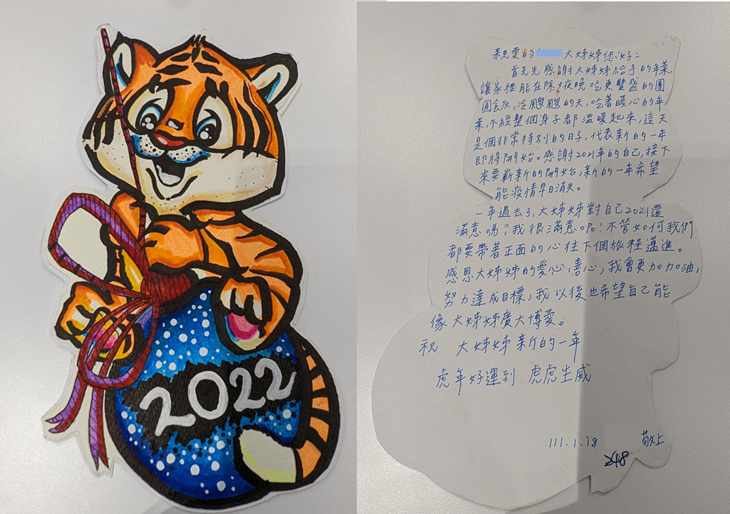 2022
親愛的 大姊姊您好:
首先先感謝大姊姊給予的年菜
讓家裡能在除夕夜晚吃更豐盛的團
圓飯,冷颼颼的天,吃著暖心的年
菜,不經整個身子都溫暖起來,這天
是個非常特別的日子,代表新的一年
即將開始。感謝2021年的自己,接下
來要勸新的開始,新的一年希望
能疫情早日消失。
一年過去了,大姊姊對自己2021還
滿意嗎?我很滿意唷!不管如何我們
都要帶著正面的心往下個旅程邁進。
感恩大姊姊的愛心,善心,我會更加加油,
努力達成目標,我以後也希望自己能
像大姊姊廣大博愛。
祝 大姊姊新的一年
虎年好運到 虎虎生威
111.1.18 敬上